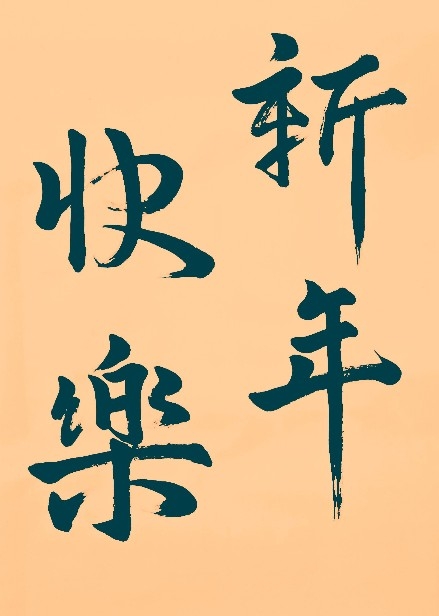 新年
快樂